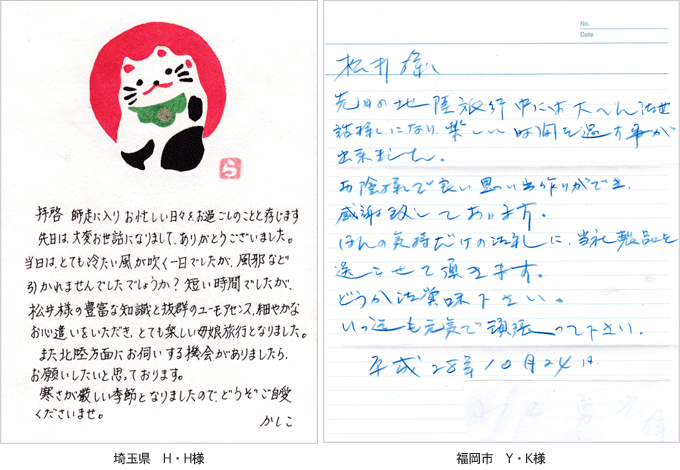 ら
拝啓 師走に入りお忙しい日々をお過ごしのことと存じます
先日は、大変お世話になりまして、ありがとうございました。
当日は、とても冷たい風が吹く一日でしたが、風邪など
引かれませんでしたでしょうか？短い時間でしたが、
松井様の豊富な知識と抜群のユーモアセンス、細やかな
お心遣いをいただき、とても楽しい母娘旅行となりました。
また北陸方面にお伺いする機会がありましたら、
お願いしたいと思っております。
寒さが厳しい季節となりましたので、どうぞご自愛
くださいませ。
かしこ
埼玉県 H・H様
No.
Date
松井様
先日の北陸旅行中には大へん御世
話様になり、楽しい時間を過す事が
出来ました。
お陰様で良い思い出作りができ、
感謝致しております。
ほんの気持だけの御礼に、当社製品を
送らせて頂きます。
どうか御賞味下さい。
いつ迄も元気で頑張って下さい。
平成28年10月24日
福岡市 Y・K様